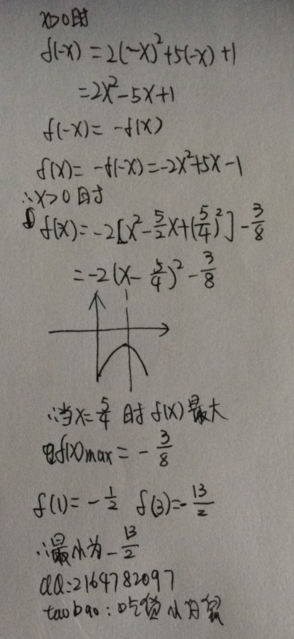 x>0时
f(-x)=2(-x)²+5(-x)+1
=2x²-5x+1
f(-x)=-f(x)
f(x)=-f(-x)=-2x²+5x-1
∴x>0时
f(x)=-2[x²-5/2x+(5/4)²]-3/8
=-2(x-5/4)²-3/8
∴当x=5/4时f(x)最大
f(x)max=-3/8
f(1)=-1/2 f(3)=-13/2
∴最小为-13/2
QQ:2164782097
taobao:吃货小方